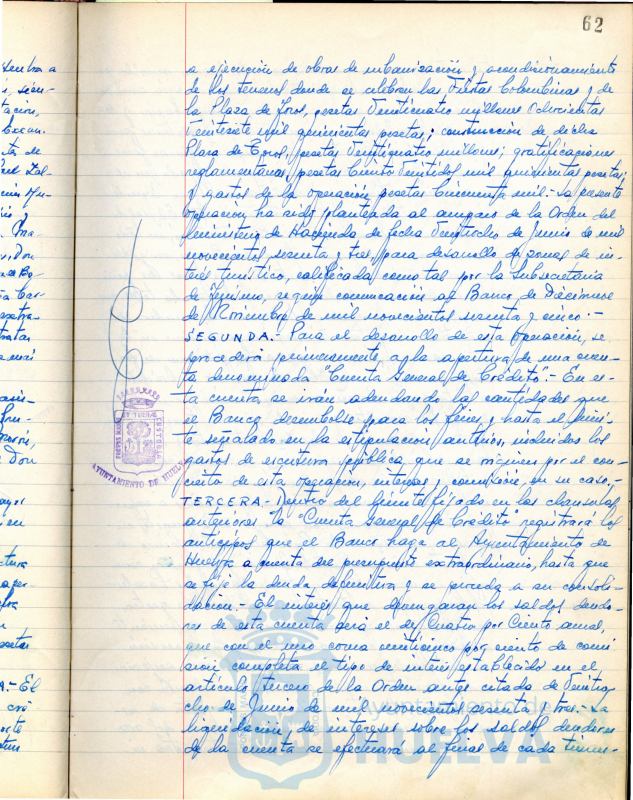 62
a ejecución de obras de urbanización y acondicionamiento
de los terrenos donde se celebran las Fiestas Colombinas y de
la Plaza de Toros, pesetas Veinticuatro millones Ochocientas
Veintisiete mil quinientas pesetas; construcción de dicha
Plaza de Toros, pesetas Veinticuatro millones; gratificaciones
reglamentarias, pesetas Ciento Veintidos mil quinientas pesetas;
y gastos de la operación pesetas Cincuenta mil.- La presente
operación ha sido planteada al amparo de la Orden del
Ministerio de Hacienda de fecha Veintiocho de Junio de mil
novecientos sesenta y tres, para desarrollo de zonas de in-
terés turístico, calificada como tal por la Subsecretaría
de Turismo, según comunicación al Banco de Diecinueve
de Noviembre de mil novecientos sesenta y cinco.-
SEGUNDA.- Para el desarrollo de esta operación, se
procederá primeramente, a la apertura de una cuen-
ta denominada "Cuenta General de Crédito".- En es-
ta cuenta se irán adeudando las cantidades que
el Banco desembolse para los fines y hasta el lími-
te señalado en la estipulación anterior, incluidos los
gastos de escritura pública que se originen por el con-
cierto de esta operación, intereses y comisión, en su caso.-
TERCERA.- Dentro del límite fijado en las clausulas
anteriores la "Cuenta General de Crédito" registrará los
anticipos que el Banco haga al Ayuntamiento de
Huelva a cuenta del presupuesto extraordinario, hasta que
se fije la deuda definitiva y se proceda a su consoli-
dación.- El interés que devengaran los saldos deudo-
res de esta cuenta será el de Cuatro por Ciento anual,
que con el uno coma veinticinco por ciento de comi-
sión completa el tipo de interés establecido en el
artículo tercero de la Orden antes citada de Veintio-
cho de Junio de mil novecientos sesenta y tres.- La
liquidación de intereses sobre los saldos deudores
de la cuenta se efectuará al final de cada trimes-
AYUNTAMIENTO DE HUELVA
HUELVA